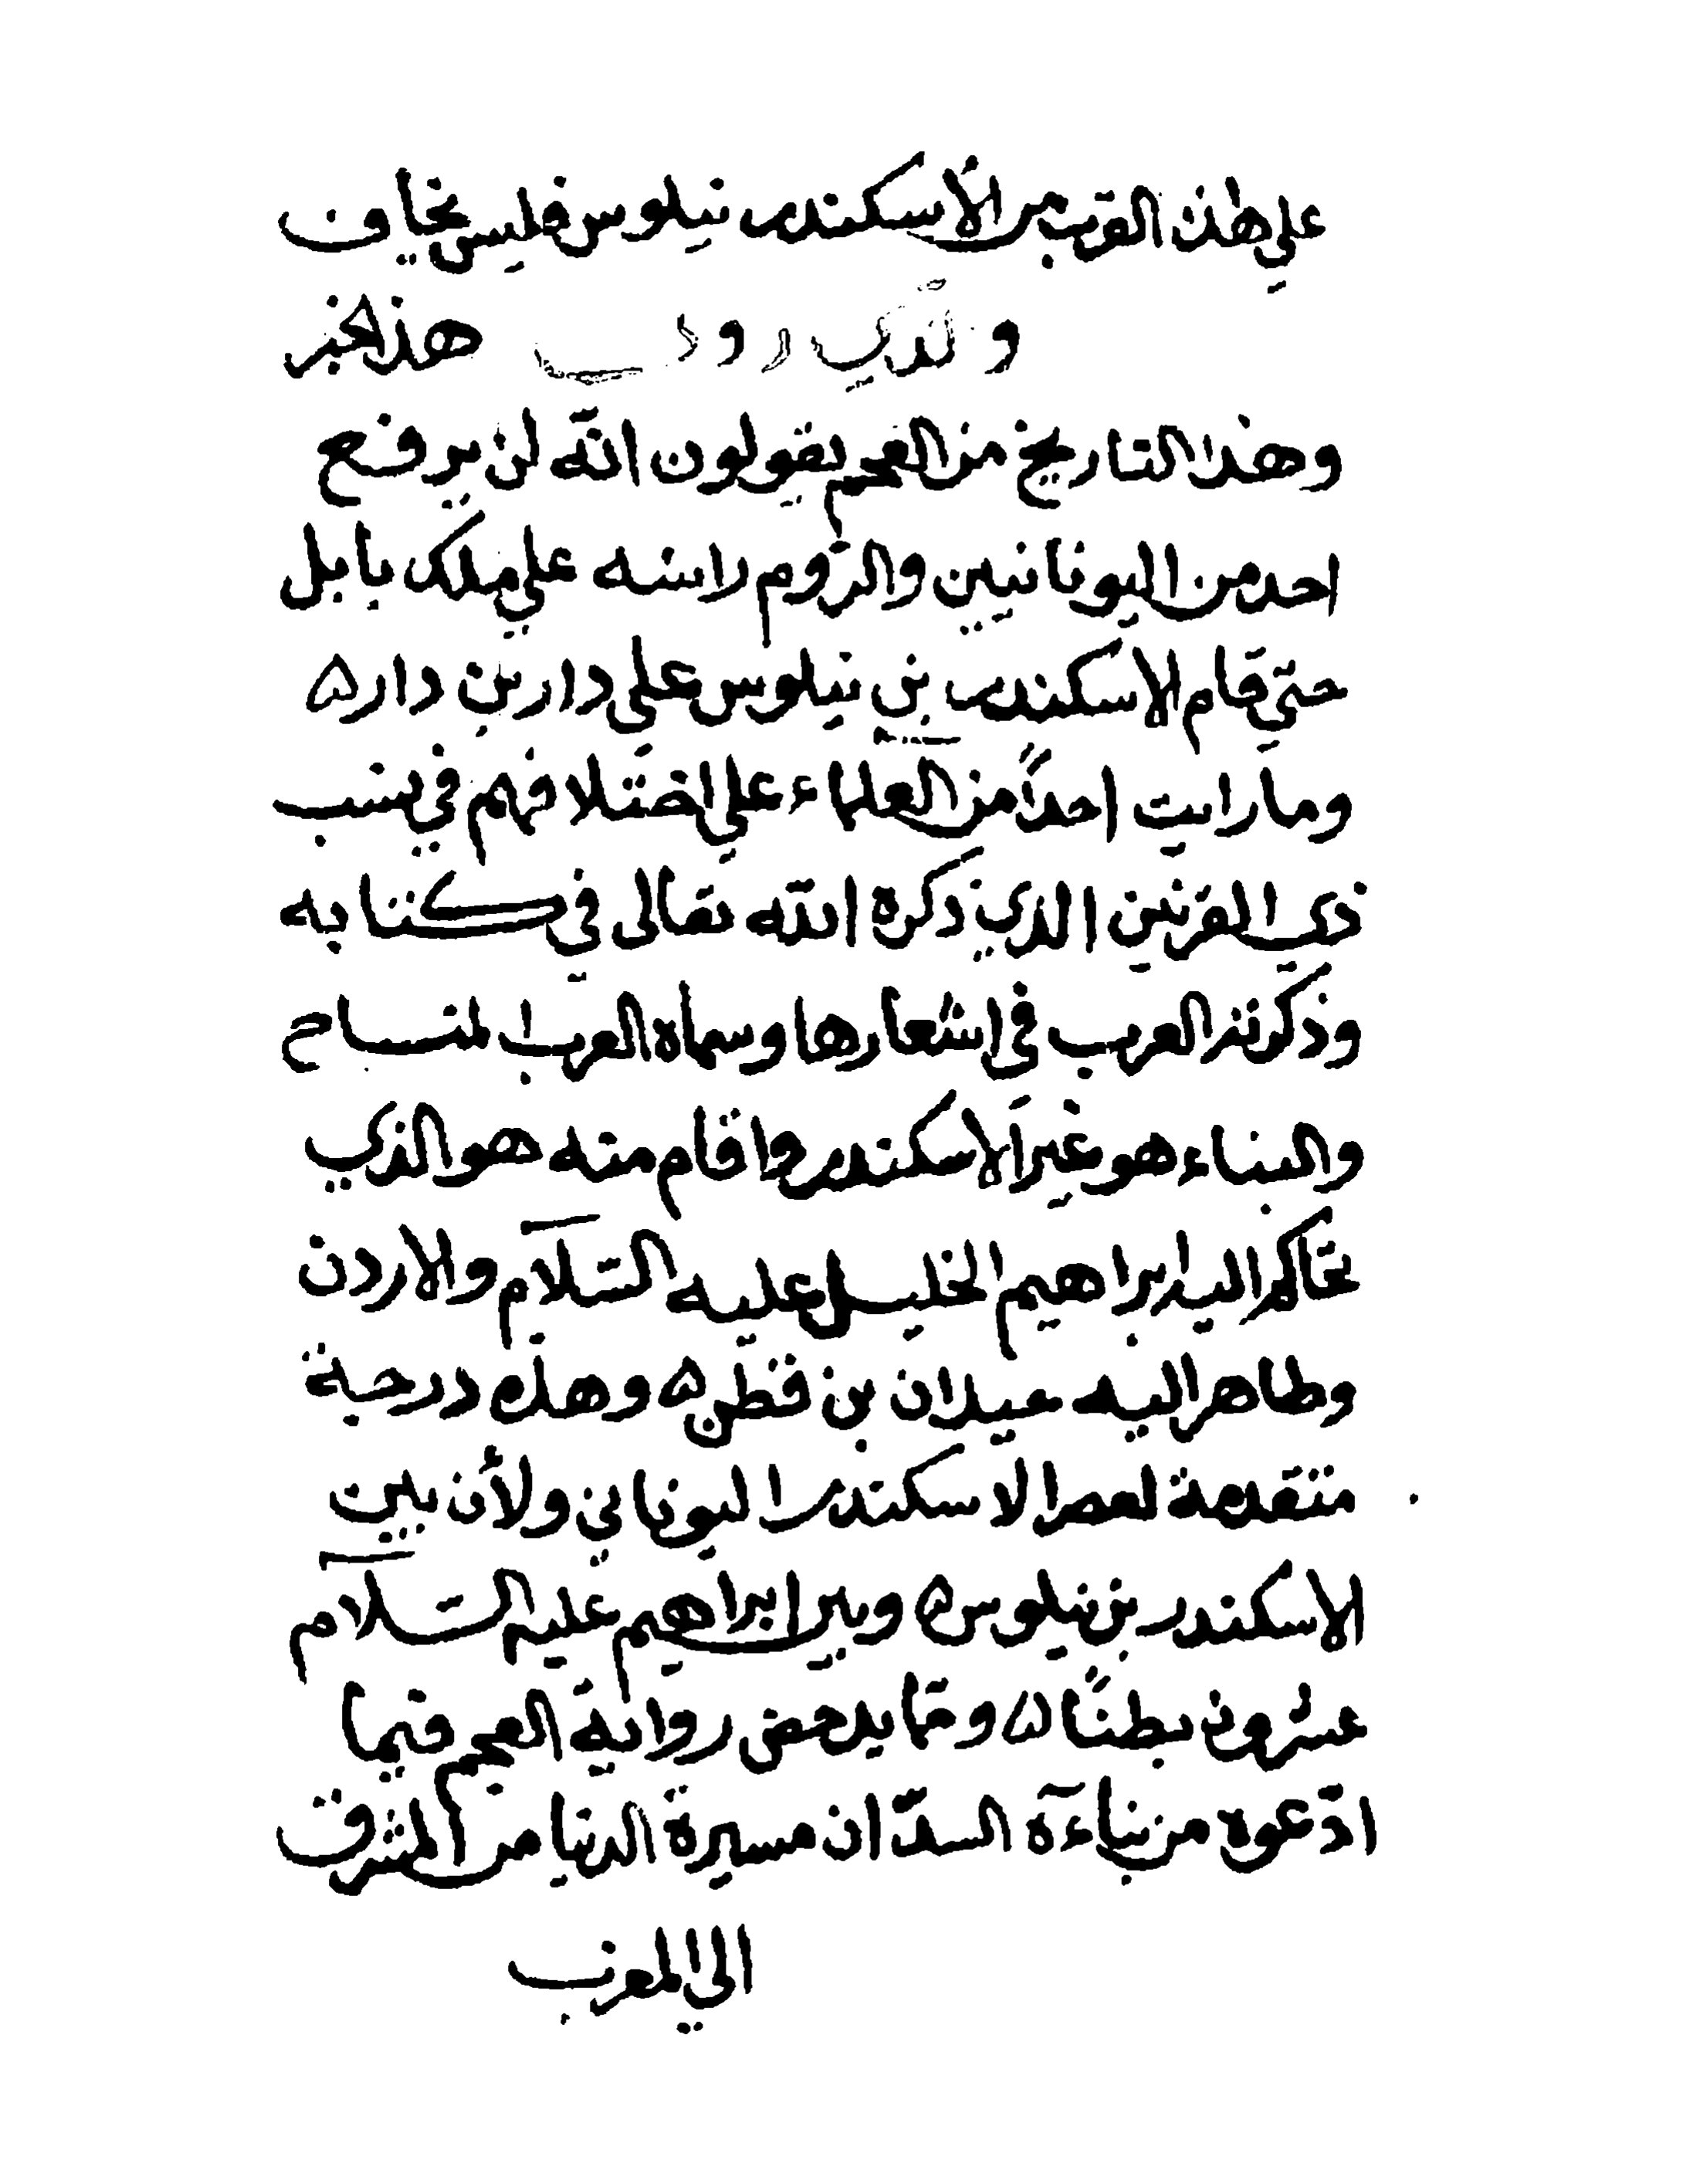 على هذا القرب من الاسكندر نيلوس فليس يخاوف
هذا الخبر
وهذا التاريخ من العجم يقولون انّه لن يرفع
احد من اليونانيين والرّوم راسه على ملك بابل
حتى قام الاسكندر بن نيلوس على دار بن دار ه
وما رايت احداً من العلماء على اختلافهم في نسب
ذي القرنين الذي ذكره الله تعالى في كتابه
وذكرته العرب في اشعارها وسماه العرب المساح
والبناء هو غير الاسكندر واقام منه هو الذي
تحاكم اليه ابراهيم الخليل عليه السّلام والاردن
وظاهر اليه عيلان بن قطن ه وهذه درجة
متقدمة لعصر الاسكندر اليوناني ولأن بين
الاسكندر بن نيلوس ه وبين ابراهيم عليه السّلام
عشرون بطنًا ه وممّا يدحض رواية العجم فيما
ادّعوه من بناءه السدّ ان مسيرة الدنيا من المشرق
الى المغرب